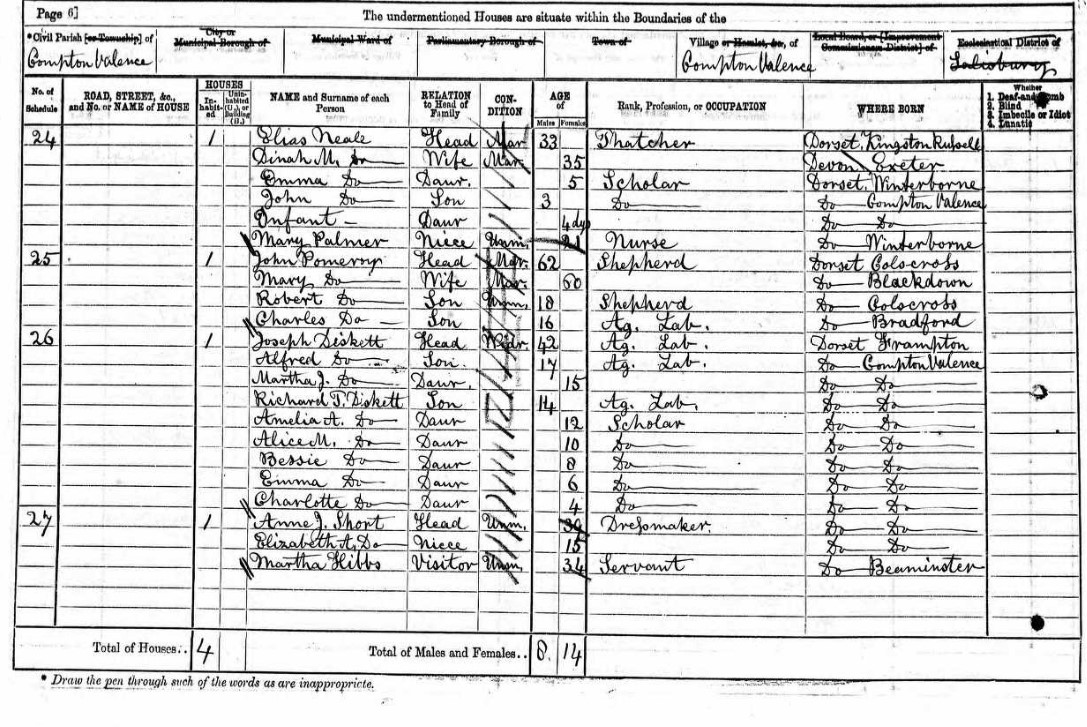 Page 6]
The undermentioned Houses are situate within the Boundaries of the
*Civil Parish [or Township] of City or Municipal Borough of Municipal Ward of Parliamentary Borough of Town of Village or Hamlet, &c., of Local Board, or [Improvement Commissioners District] of Ecclesiastical District of
Compton Valence Compton Valence Salisbury
No. of Schedule ROAD, STREET, &c., and No. or NAME of HOUSE HOUSES In-habit-ed Unin-habited (U.), or Building (B.) NAME and Surname of each Person RELATION to Head of Family CON-DITION AGE of Males Females Rank, Profession, or OCCUPATION WHERE BORN Whether 1. Deaf-and-Dumb 2. Blind 3. Imbecile or Idiot 4. Lunatic
24 1 Elias Neale Head Mar 33 Thatcher Dorset, Kingston Russell
Dinah M. Do Wife Mar. 35 Devon, Exeter
Emma Do Daur. 5 Scholar Dorset, Winterborne
John Do Son 3 Do Do Compton Valence
Infant - Daur 4 dys Do Do
Mary Palmer Niece Unm. 21 Nurse Do Winterborne
25 1 John Pomeroy Head Mar. 62 Shepherd Dorset Colscross
Mary Do Wife Mar. 60 Do Blackdown
Robert Do Son Unm. 18 Shepherd Do Colscross
Charles Do Son 16 Ag. Lab. Do Bradford
26 1 Joseph Diskett Head Widr. 42 Ag. Lab. Dorset Frampton
Alfred Do Son. 17 Ag. Lab. Do Compton Valence
Martha J. Do Daur. 15 Do Do
Richard T. Diskett Son 14 Ag. Lab. Do Do
Amelia A. Do Daur 12 Scholar Do Do
Alice M. Do Daur 10 Do Do Do
Bessie Do Daur 8 Do Do Do
Emma Do Daur 6 Do Do Do
Charlotte Do Daur 4 Do Do Do
27 1 Anne J. Short Head Unm. 30 Dressmaker Do Do
Elizabeth A. Do Niece 15 Do Do
Martha Hibbs Visitor Unm. 34 Servant Do Beaminster
Total of Houses.. 4 Total of Males and Females.. 8 14
* Draw the pen through such of the words as are inappropriate.